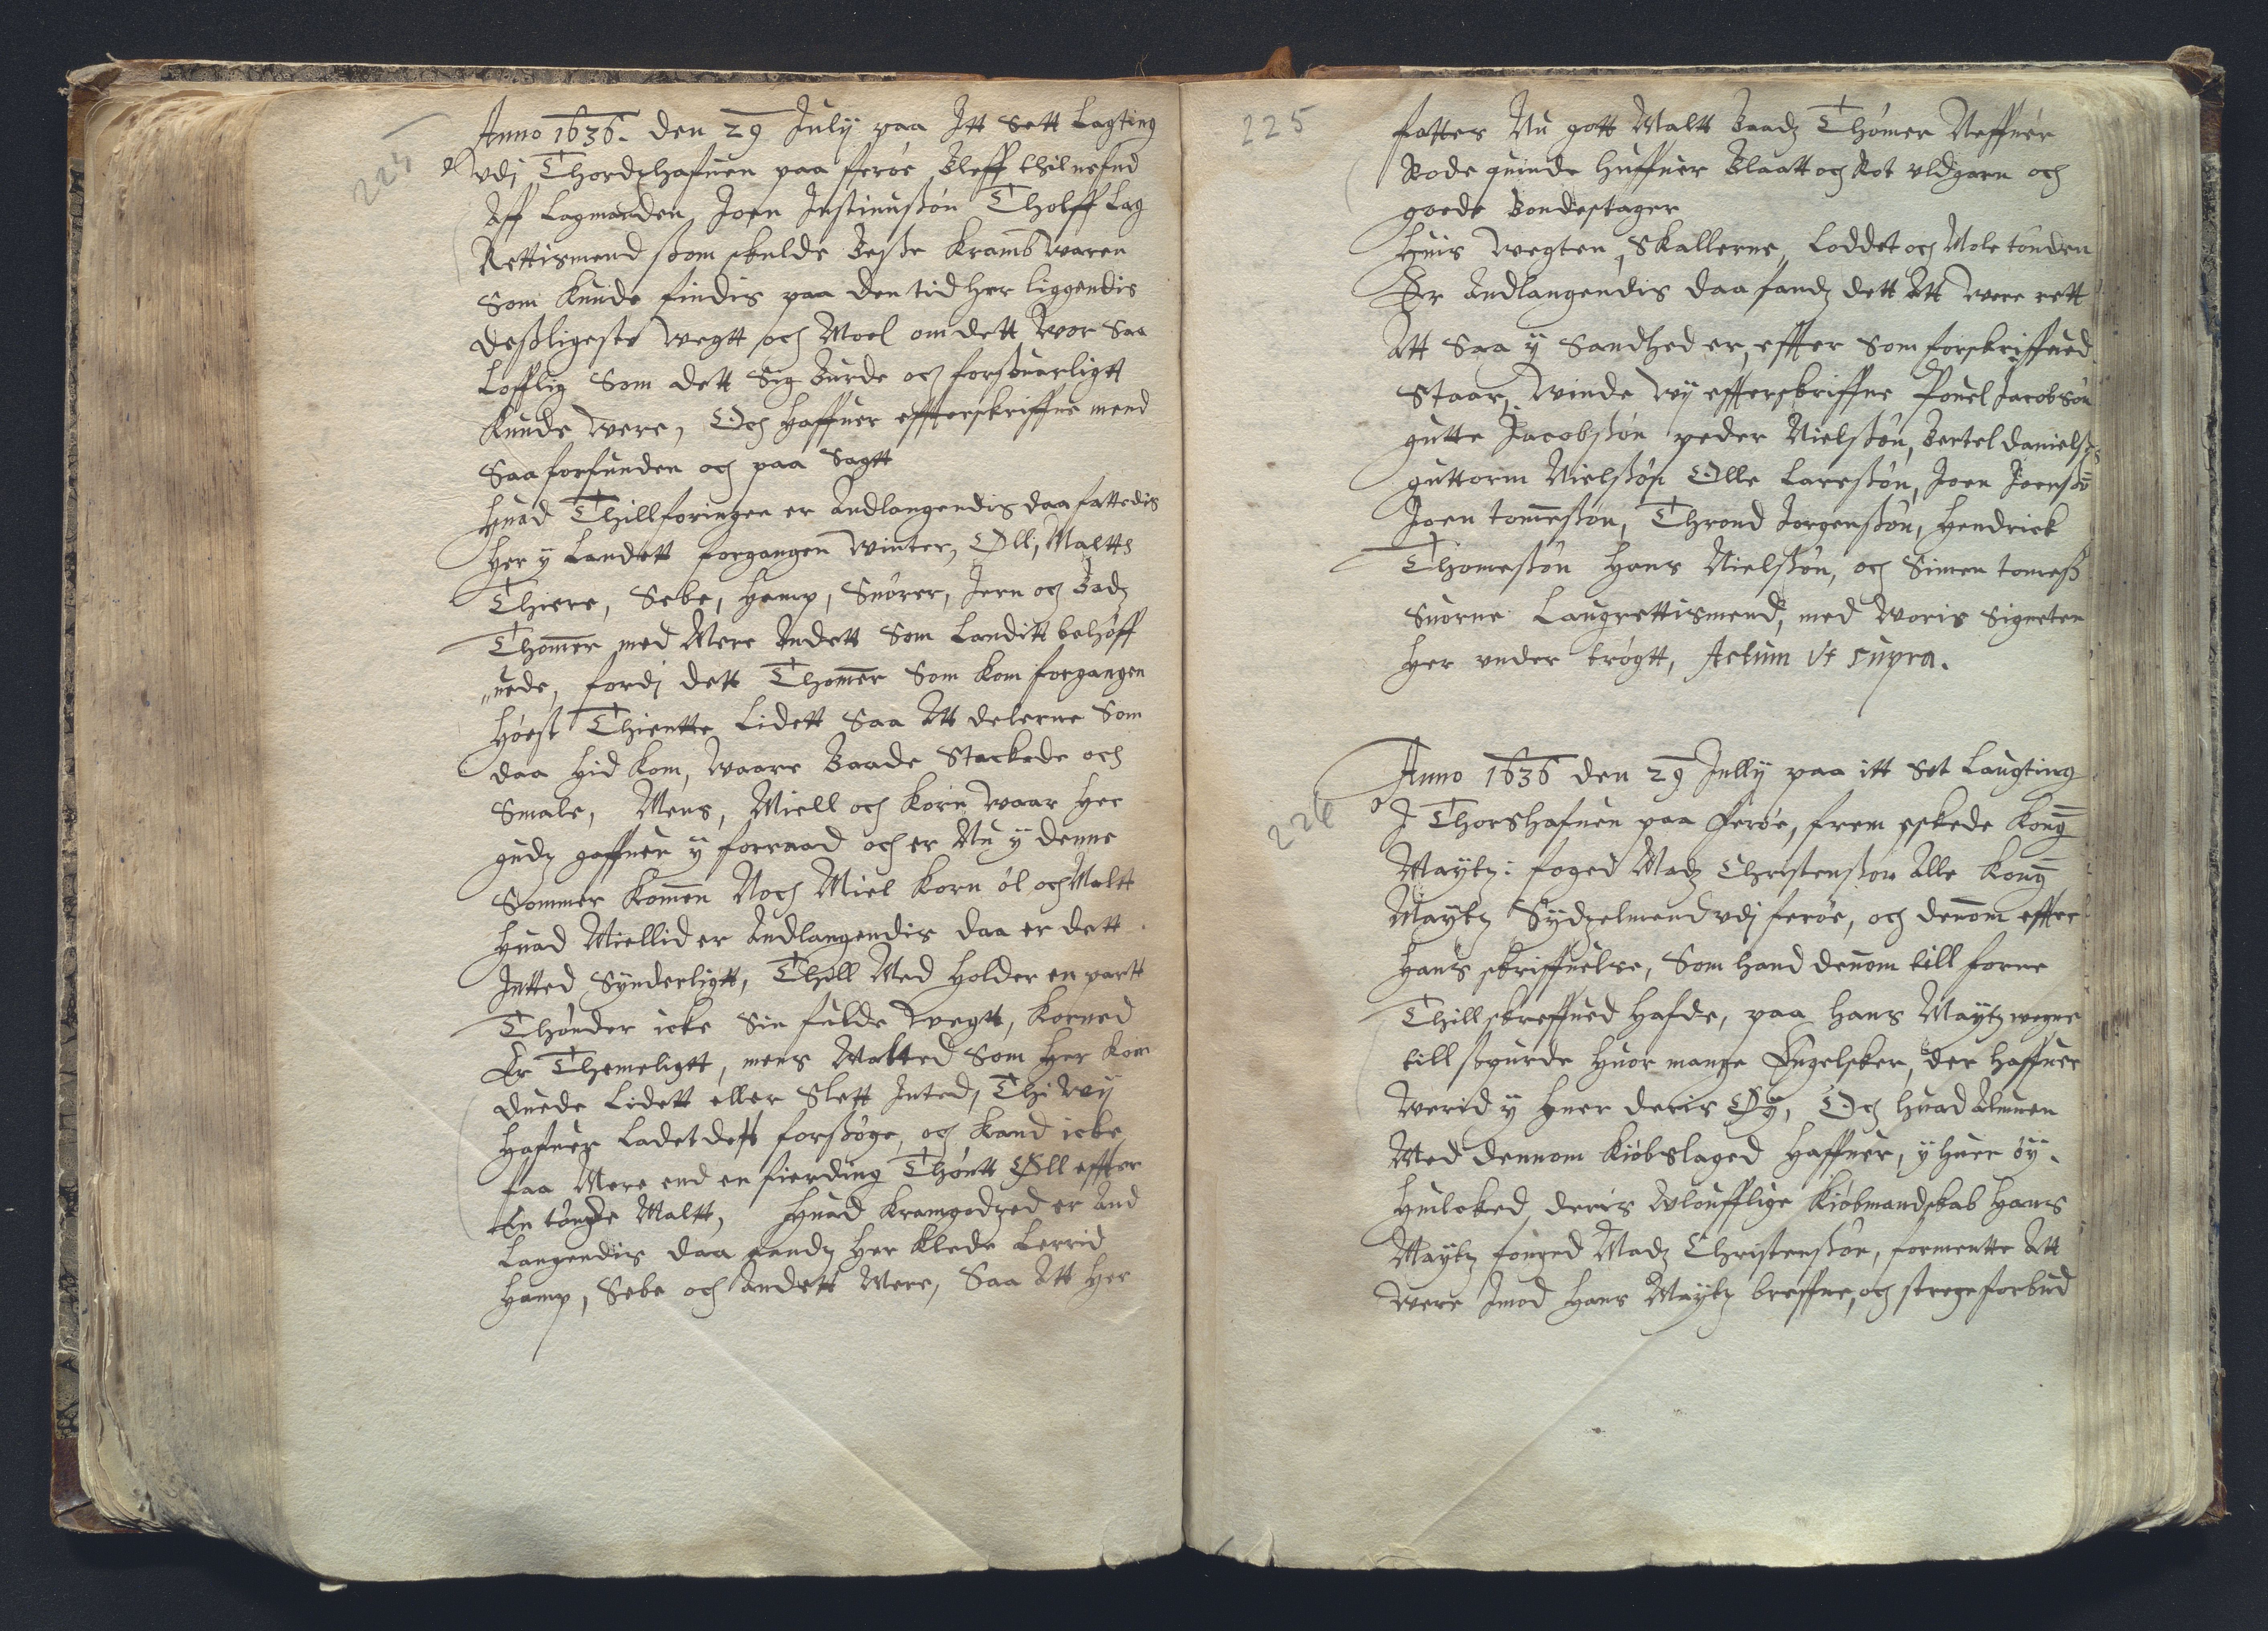 225
Anno 1636. den 29 Julij paa Itt Sett Lagting
Vdj Thordshafuen paa fferöe Bleff thilnefnd
Aff Lagmanden, Joen Justinussön Tholff Lag
Rettismend ssom skulde Besse Kramb waren
Som Kunde findis paa den tid her liggendis
dessligeste wegtt och Moel om dett wor saa
Lofflig Som dett Sig Burde och forssuarligtt
Kunde were, Och haffuer effterskriffne mend
Saa forfunden och paa Sagtt
Huad Thillforingen er Andlangendis daa fattedis
her y Landett forgangen winter, Öll, Maltt
Thiere, Sebe, Hamp, Snörer, Jern och Badz
Thommer med Mere Andett Som Landitt behöff
„uede, fordj dett Thommer Som kom forgangen
Höest Thientte Lidett Saa Att delerne Som
daa hid kom, waare Baade Stackede och
Smale, Mens, Miell och Korn waar her
gudz gaffuer y forraad och er Nu y denne
Sommer Kommen Noch Miel Korn öl och Maltt
Huad Miellid er Andlangendis daa er dett
Intted Synderligtt, Thill Med holder en partt
Thönder icke Sin fulde wegtt, Korned
Er Themeligtt, mens Malted Som her kom
duede Lidett eller Slett Inted, Thi wij
Hafuer Ladet dett forssöge, och kand icke
faa Mere end en fierding Thöntt Öll effter
En tönde Maltt, Huad Kramgodzed er And
Langendis daa fandz her Klede Lerrid
Hamp, Sebe och Andett Mere, Saa Att her
225
fattes Nu gott Maltt Baadz Thömer Neffuer
Rode quinde Huffuer Blaatt och Rot uldgarn och
goede Bondestager
Huis wegten, Skallerne, Loddet och Mole tönden
Er Andlangendis daa fandz dett Att were rett
Att Saa y Sandhed er, effter Som forskriffued
Staar, winde wij effterskriffne Pouel Jacobsön
gutte Jacobssön peder Nielssön, Bertel danielss
guttorm Nielssön Olle Larssön, Joen Joenssön
Joen tommessön, Thrond Jorgenssön, Hendrick
Thomessön Hans Nielssön, och Simen tomess
Suorne Laugrettismend, med woris Signeter
her under trögtt, Actum Vt supra.
226
Anno 1636 den 29 Jullij paa itt Set Laugting
I Thorshafuen paa Feröe, frem eskede Kong
Maÿtz: foged Madz Christenssön Alle Kong
Maÿtz Sydzelmend vdj feröe, och dennom effter
Hans skriffuelse, Som hand dennom till forne
Thill skreffued hafde, paa Hans Maÿtz wegne
till sspurde Huor mange Engelsker, der haffuer
Werid y huer deris Öÿ, Och huad Almuen
Med dennom Kiöbslaged Haffuer, y huer öÿ.
Huilcked deris Vloufflige Kiöbmandskab Hans
Maÿtz fouged Madz Christenssön, formentte Att
were Imod Hans Maÿtz breffue, och strege forbud